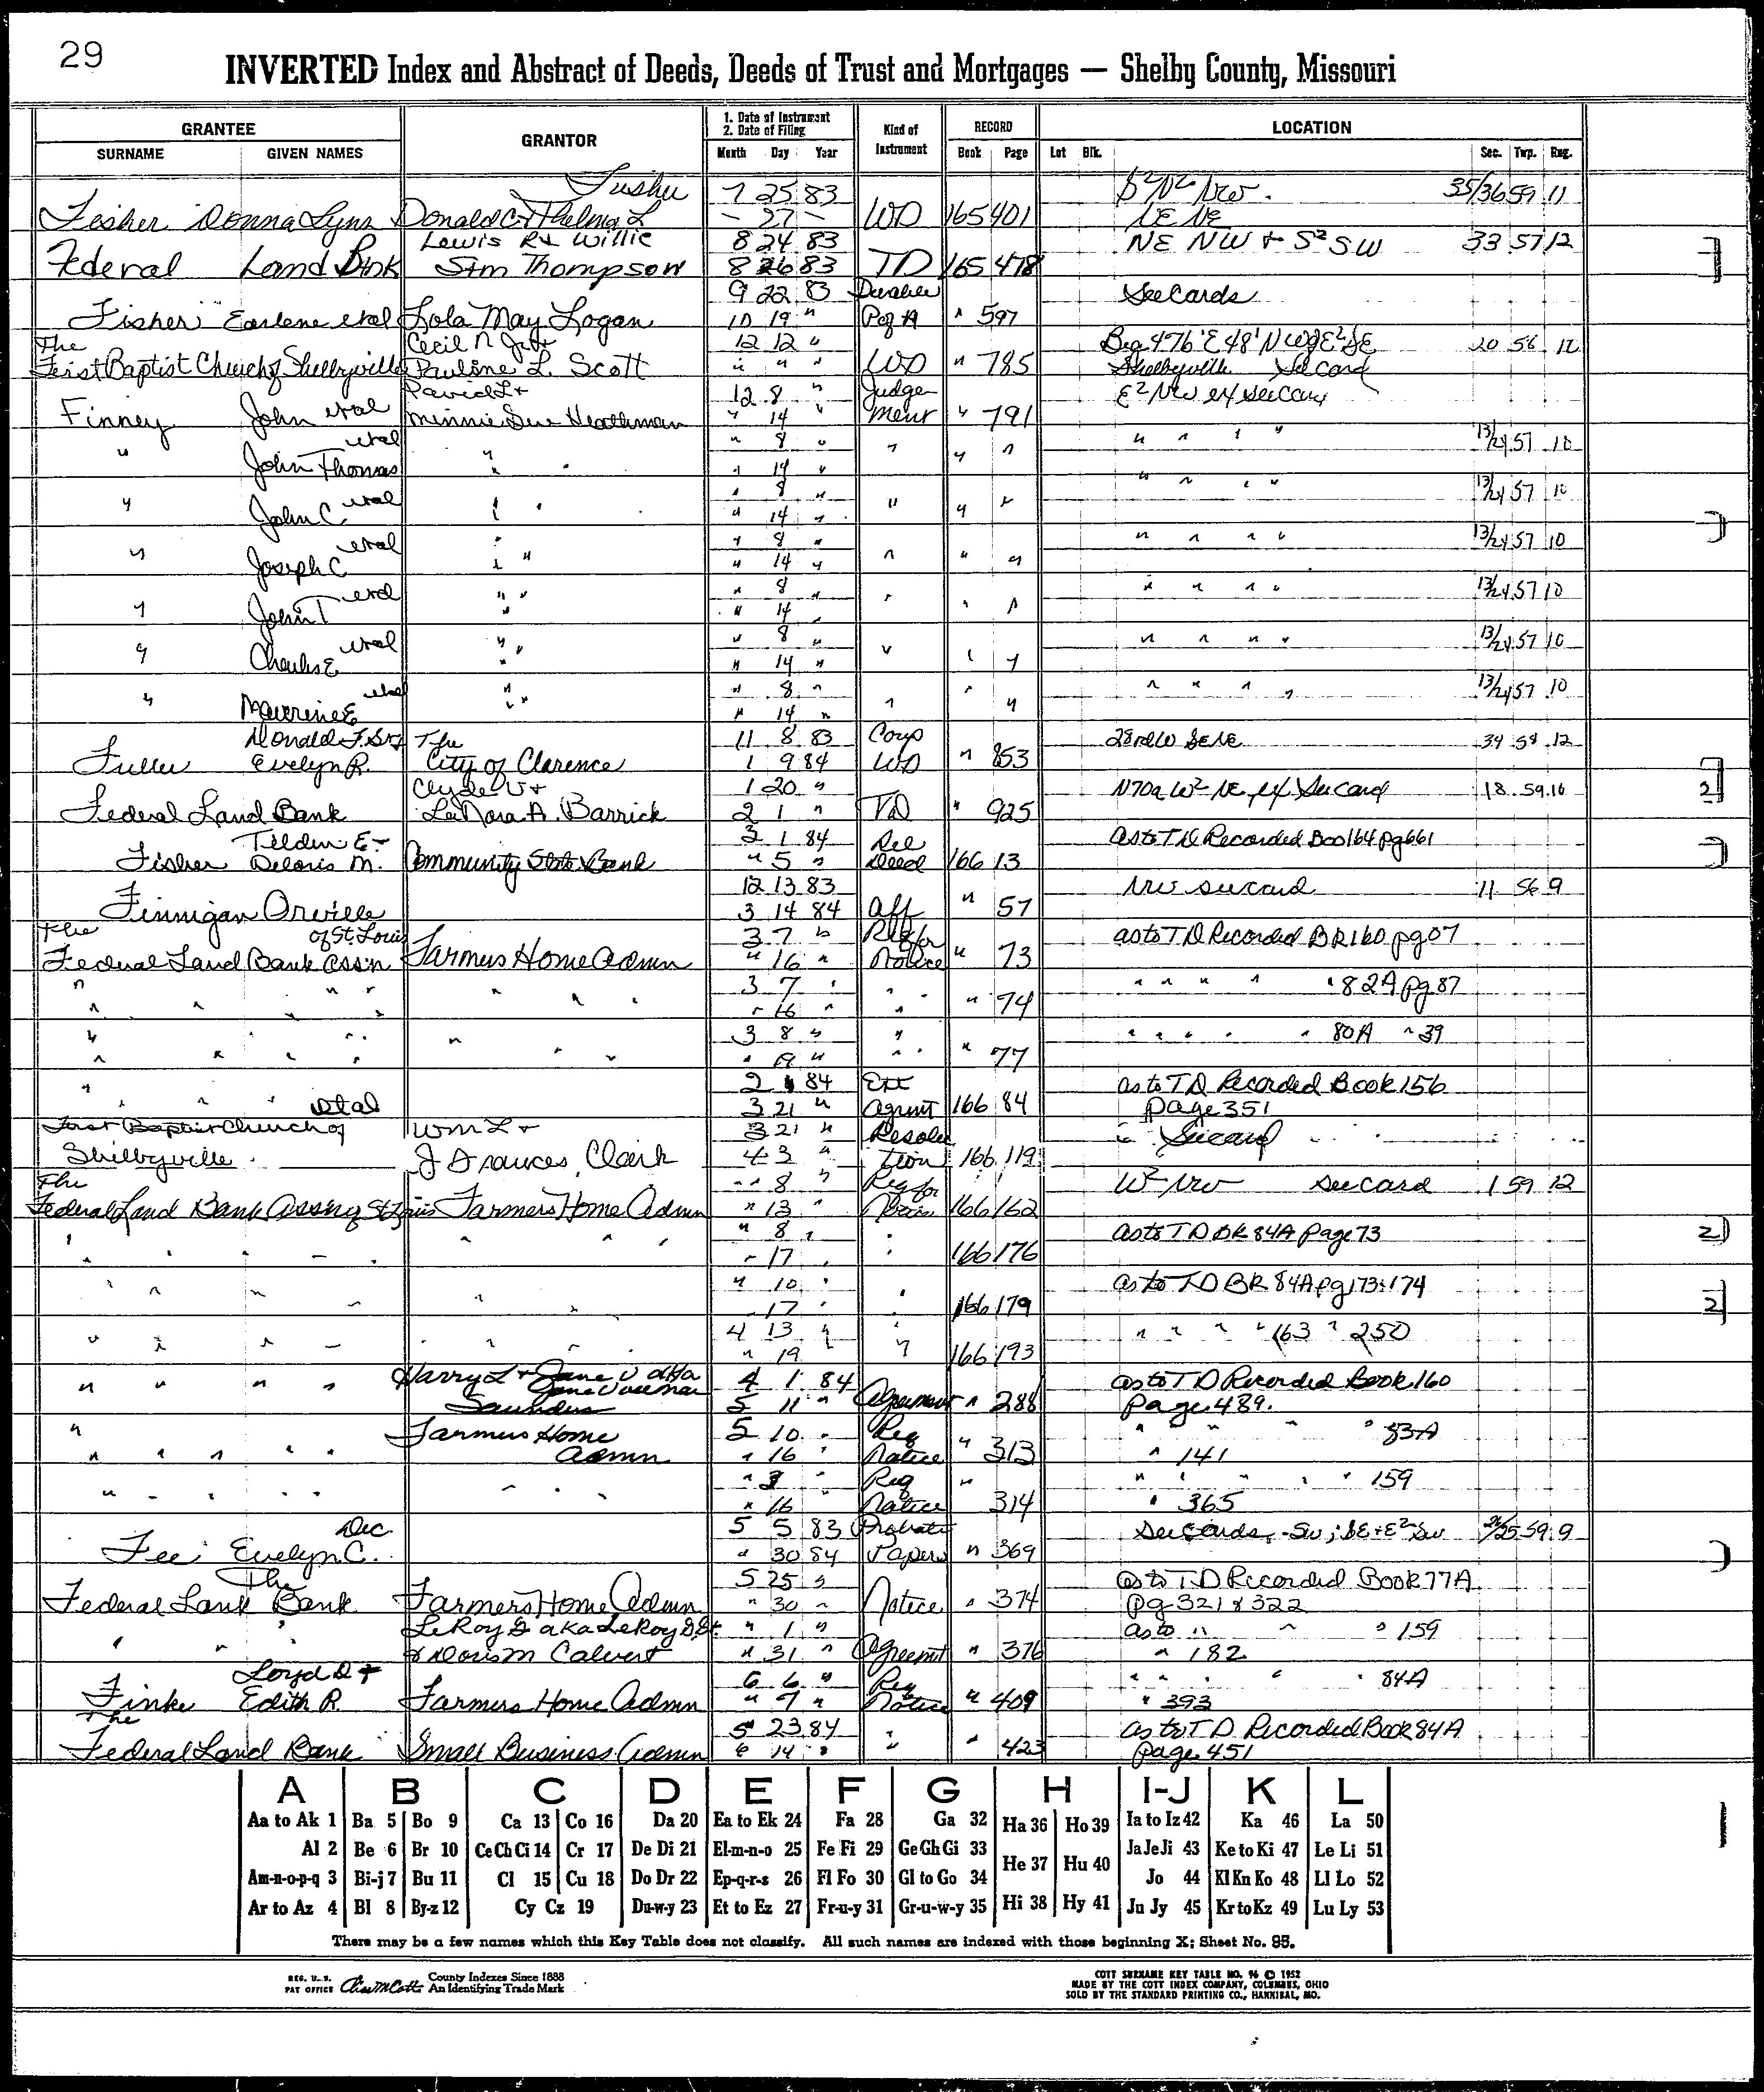 29
INVERTED Index and Abstract of Deeds, Deeds of Trust and Mortgages — Shelby County, Missouri
GRANTEE GRANTOR 1. Date of Instrument 2. Date of Filing Kind of Instrument RECORD LOCATION
SURNAME GIVEN NAMES Month Day Year Book Page Lot Blk. Sec. Twp. Rng.
Fisher 7 25 83 S²N² NW. 35/36 59 11
Fisher Donna Lynn Donald C + Thelma L — 27 — WD 165 401 NE NE
Lewis R + Willie 8 24 83 NE NW + S² SW 33 57 12
Federal Land Bank Sim Thompson 8 26 83 TD 165 478
9 22 83 Durable See Cards
Fisher Earlene etal Lola May Logan 10 19 " Pof A " 597
The Cecil N Jr + 12 12 " Beg 476'E 48'N W E² SE 20 58 12
First Baptist Church of Shelbyville Pauline L. Scott " " " WD " 785 Shelbyville See Card
David L + 12 8 " Judge E² NW ex see card
Finney John etal Minnie Sue Heathman " 14 " ment " 791
" John Thomas etal " " " 8 " " " " " " " " 13/24 57 10
" 14 "
" John C etal " " 8 " " " " " " " " 13/24 57 10
" 14 "
" Joseph C etal " " " 8 " " " " " " " " 13/24 57 10
" 14 "
" John T etal " " " 8 " " " " " " " " 13/24 57 10
" 14 "
" Charles E etal " " " 8 " " " " " " " " 13/24 57 10
" 14 "
" Maurine E etal " " " 8 " " " " " " " 13/24 57 10
" 14 "
Donald F. Sr + The 11 8 83 Corp 28 rd W SE NE 34 58 12
Fuller Evelyn R. City of Clarence 1 9 84 WD " 853
Clyde V + 1 20 " N 70a W² NE ex See Card 18 59 10
Federal Land Bank LaNora A. Barrick 2 1 " TD " 925
Tilden E + 3 1 84 Rel as to TD Recorded Boo 164 pg 661
Fisher Deloris M. Community State Bank " 5 " Deed 166 13
12 13 83 NW see card 11 56 9
Finnigan Orville 3 14 84 Aff " 57
The of St. Louis 3 7 " Req for as to TD Recorded BR 160 pg 07
Federal Land Bank Assn Farmers Home Admn " 16 " Notice " 73
" " " 3 7 " " " " " " 82A pg 87
" " " " " " " " 16 " " " 74
" " " " 3 8 " " " " " " " 80A " 39
" " " " " " " 19 " " " " 77
" 2 84 Ext as to TD Recorded Book 156
" " " etal 3 21 " Agrmt 166 84 page 351
First Baptist Church of Wm L + 3 21 " Resolu See card
Shelbyville J Frances Clark 4 3 " tion 166 119
The " 8 " Req for W² NW see card 1 59 12
Federal Land Bank Assn of St Louis Farmers Home Admn " 13 " 166 162
" 8 " as to TD BK 84A page 73
" " " " " " " " 17 " " 166 176
" 10 " as to TD BR 84A pg 173 + 174
" " " " " " 17 " " 166 179
4 13 " " " " " 163 " 250
" " " " " " " 19 " 166 193
Harry L + Jane V aka 4 1 84 as to TD Recorded Book 160
" " " " Saunders 5 11 " Agreement " 288 page 489.
" Farmers Home 5 10 " Req " " " " 83A
" " " " " Admn " 16 " Notice " 313 " 141
" 8 " Req " " " " " 159
" " " " " " " " " 16 Notice 314 " 365
Dec. 5 5 83 Probate See cards, SW; SE + E² SW 26/25 59 9
Fee Evelyn C. " 30 84 Papers " 369
The 5 25 " as to TD Recorded Book 77A
Federal Lank Bank Farmers Home Admn " 30 " Notice " 374 pg 321 & 322
LeRoy D aka LeRoy D. Jr. " 1 " as to " " " 159
" " " & Doris M Calvert " 31 " Agreemt " 376 " 182
Loyd D + 6 6 " Req " " " " 84A
Finke Edith R. Farmers Home Admn " 7 " Notice " 409 " 393
The 5 23 84 as to TD Recorded Book 84A
Federal Land Bank Small Business Admn 6 14 " " " 423 page 451
A B C D E F G H I-J K L
Aa to Ak 1 Ba 5 Bo 9 Ca 13 Co 16 Da 20 Ea to Ek 24 Fa 28 Ga 32 Ha 36 Ho 39 Ia to Iz 42 Ka 46 La 50
Al 2 Be 6 Br 10 Ce Ch Ci 14 Cr 17 De Di 21 El-m-n-o 25 Fe Fi 29 Ge Gh Gi 33 He 37 Hu 40 Ja Je Ji 43 Ke to Ki 47 Le Li 51
Am-n-o-p-q 3 Bi-j 7 Bu 11 Cl 15 Cu 18 Do Dr 22 Ep-q-r-s 26 Fl Fo 30 Gl to Go 34 Jo 44 Kl Kn Ko 48 Ll Lo 52
Ar to Az 4 Bl 8 By-z 12 Cy Cz 19 Du-w-y 23 Et to Ez 27 Fr-u-y 31 Gr-u-w-y 35 Hi 38 Hy 41 Ju Jy 45 Kr to Kz 49 Lu Ly 53
There may be a few names which this Key Table does not classify. All such names are indexed with those beginning X; Sheet No. 95.
REG. U.S. PAT OFFICE County Indexes Since 1888 An Identifying Trade Mark
COTT SURNAME KEY TABLE NO. 96 © 1952
MADE BY THE COTT INDEX COMPANY, COLUMBUS, OHIO
SOLD BY THE STANDARD PRINTING CO., HANNIBAL, MO.